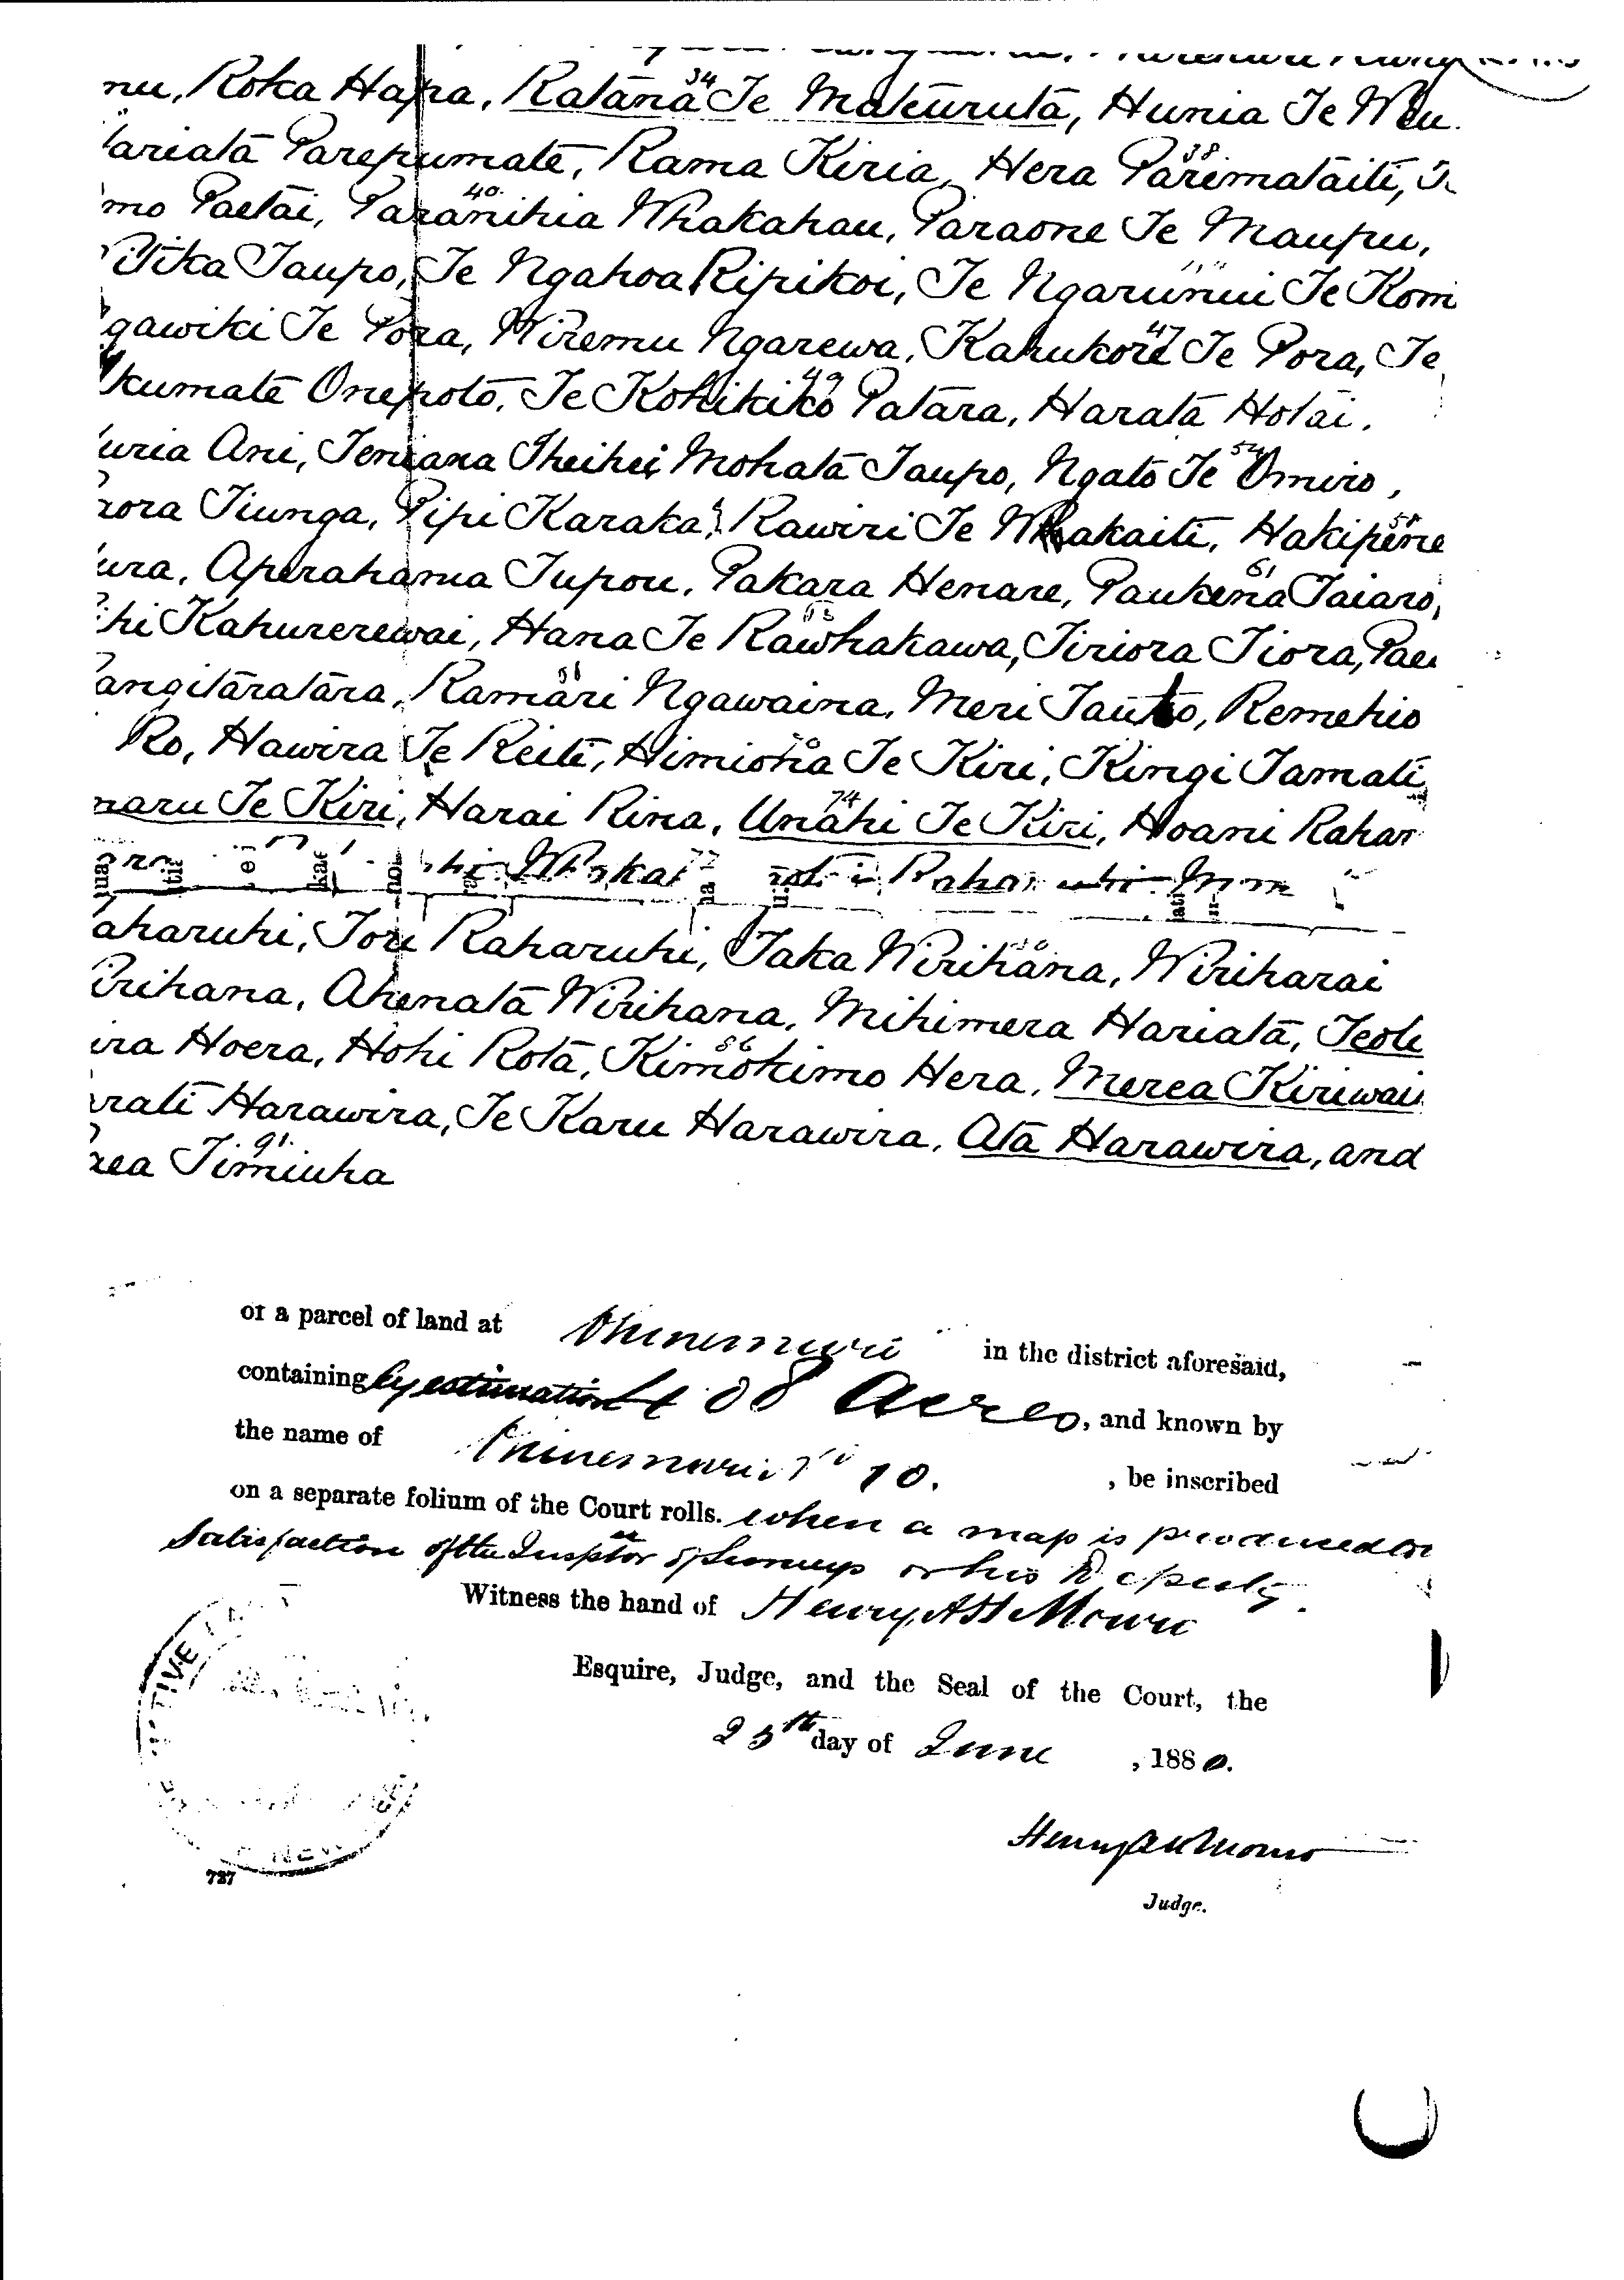 nu, Roka Hapa, Ratana 34 Te Mateuruta, Hunia Te
tariata Parepumate, Rama Kiria, Hera 38 Parimataiti,
mo Paetai, 40. Paranihia Whakahau, Paraone Te Maupu,
Titika Taupo, Te Ngahoa Ripikoi, Te Ngarunui Te Kom
gawiki Te Pora, Wiremu Ngarewa, Kahukore 47 Te Pora, Te
kumate Onepoto, Te Kohikiko 49 Patara, Harata Hotai.
uria Ani, Teniana Iheihei, Mohata Taupo, Ngato Te 54 Omiro,
rora Tiunga, Pipi Karaka, Rawiri Te Whakaiti, Hakipene 58
ura, Aperahama Tupou, Pakara Henare, Paukena 61 Taiaro,
hi Kahurerewai, Hana Te Rawhakawa, Tiriora Tiora, Pae
angitaratara, Ramari Ngawaina, Meri Tauto, Remehio
Ro, Hawira Te Reiti, Himiona 70 Te Kiri, Kingi Tamati
naru Te Kiri, Harai Rina, 74 Unahi Te Kiri, Hoani Rahar
aharuhi, Tori Raharuhi, Taka Wirihana, Wiriharai
irihana, Ahenata Wirihana, Mihimera Hariata, Teoti
ira Hoera, Hohi Rota, 86 Kimokimo Hera, Merea Kiriwai
rati Harawira, Te Karu Harawira, Ata Harawira, and
rea 91. Timiuha
of a parcel of land at Ohinemuri in the district aforesaid,
containing by estimation 08 Acres, and known by
the name of Ohinemuri No 10. , be inscribed
on a separate folium of the Court rolls. when a map is produced
Satisfaction of the Inspector of Surveys or his Deputy.
Witness the hand of Henry A H Monro
Esquire, Judge, and the Seal of the Court, the
25th day of June , 1880.
NEW
727
Henry A H Monro
Judge.